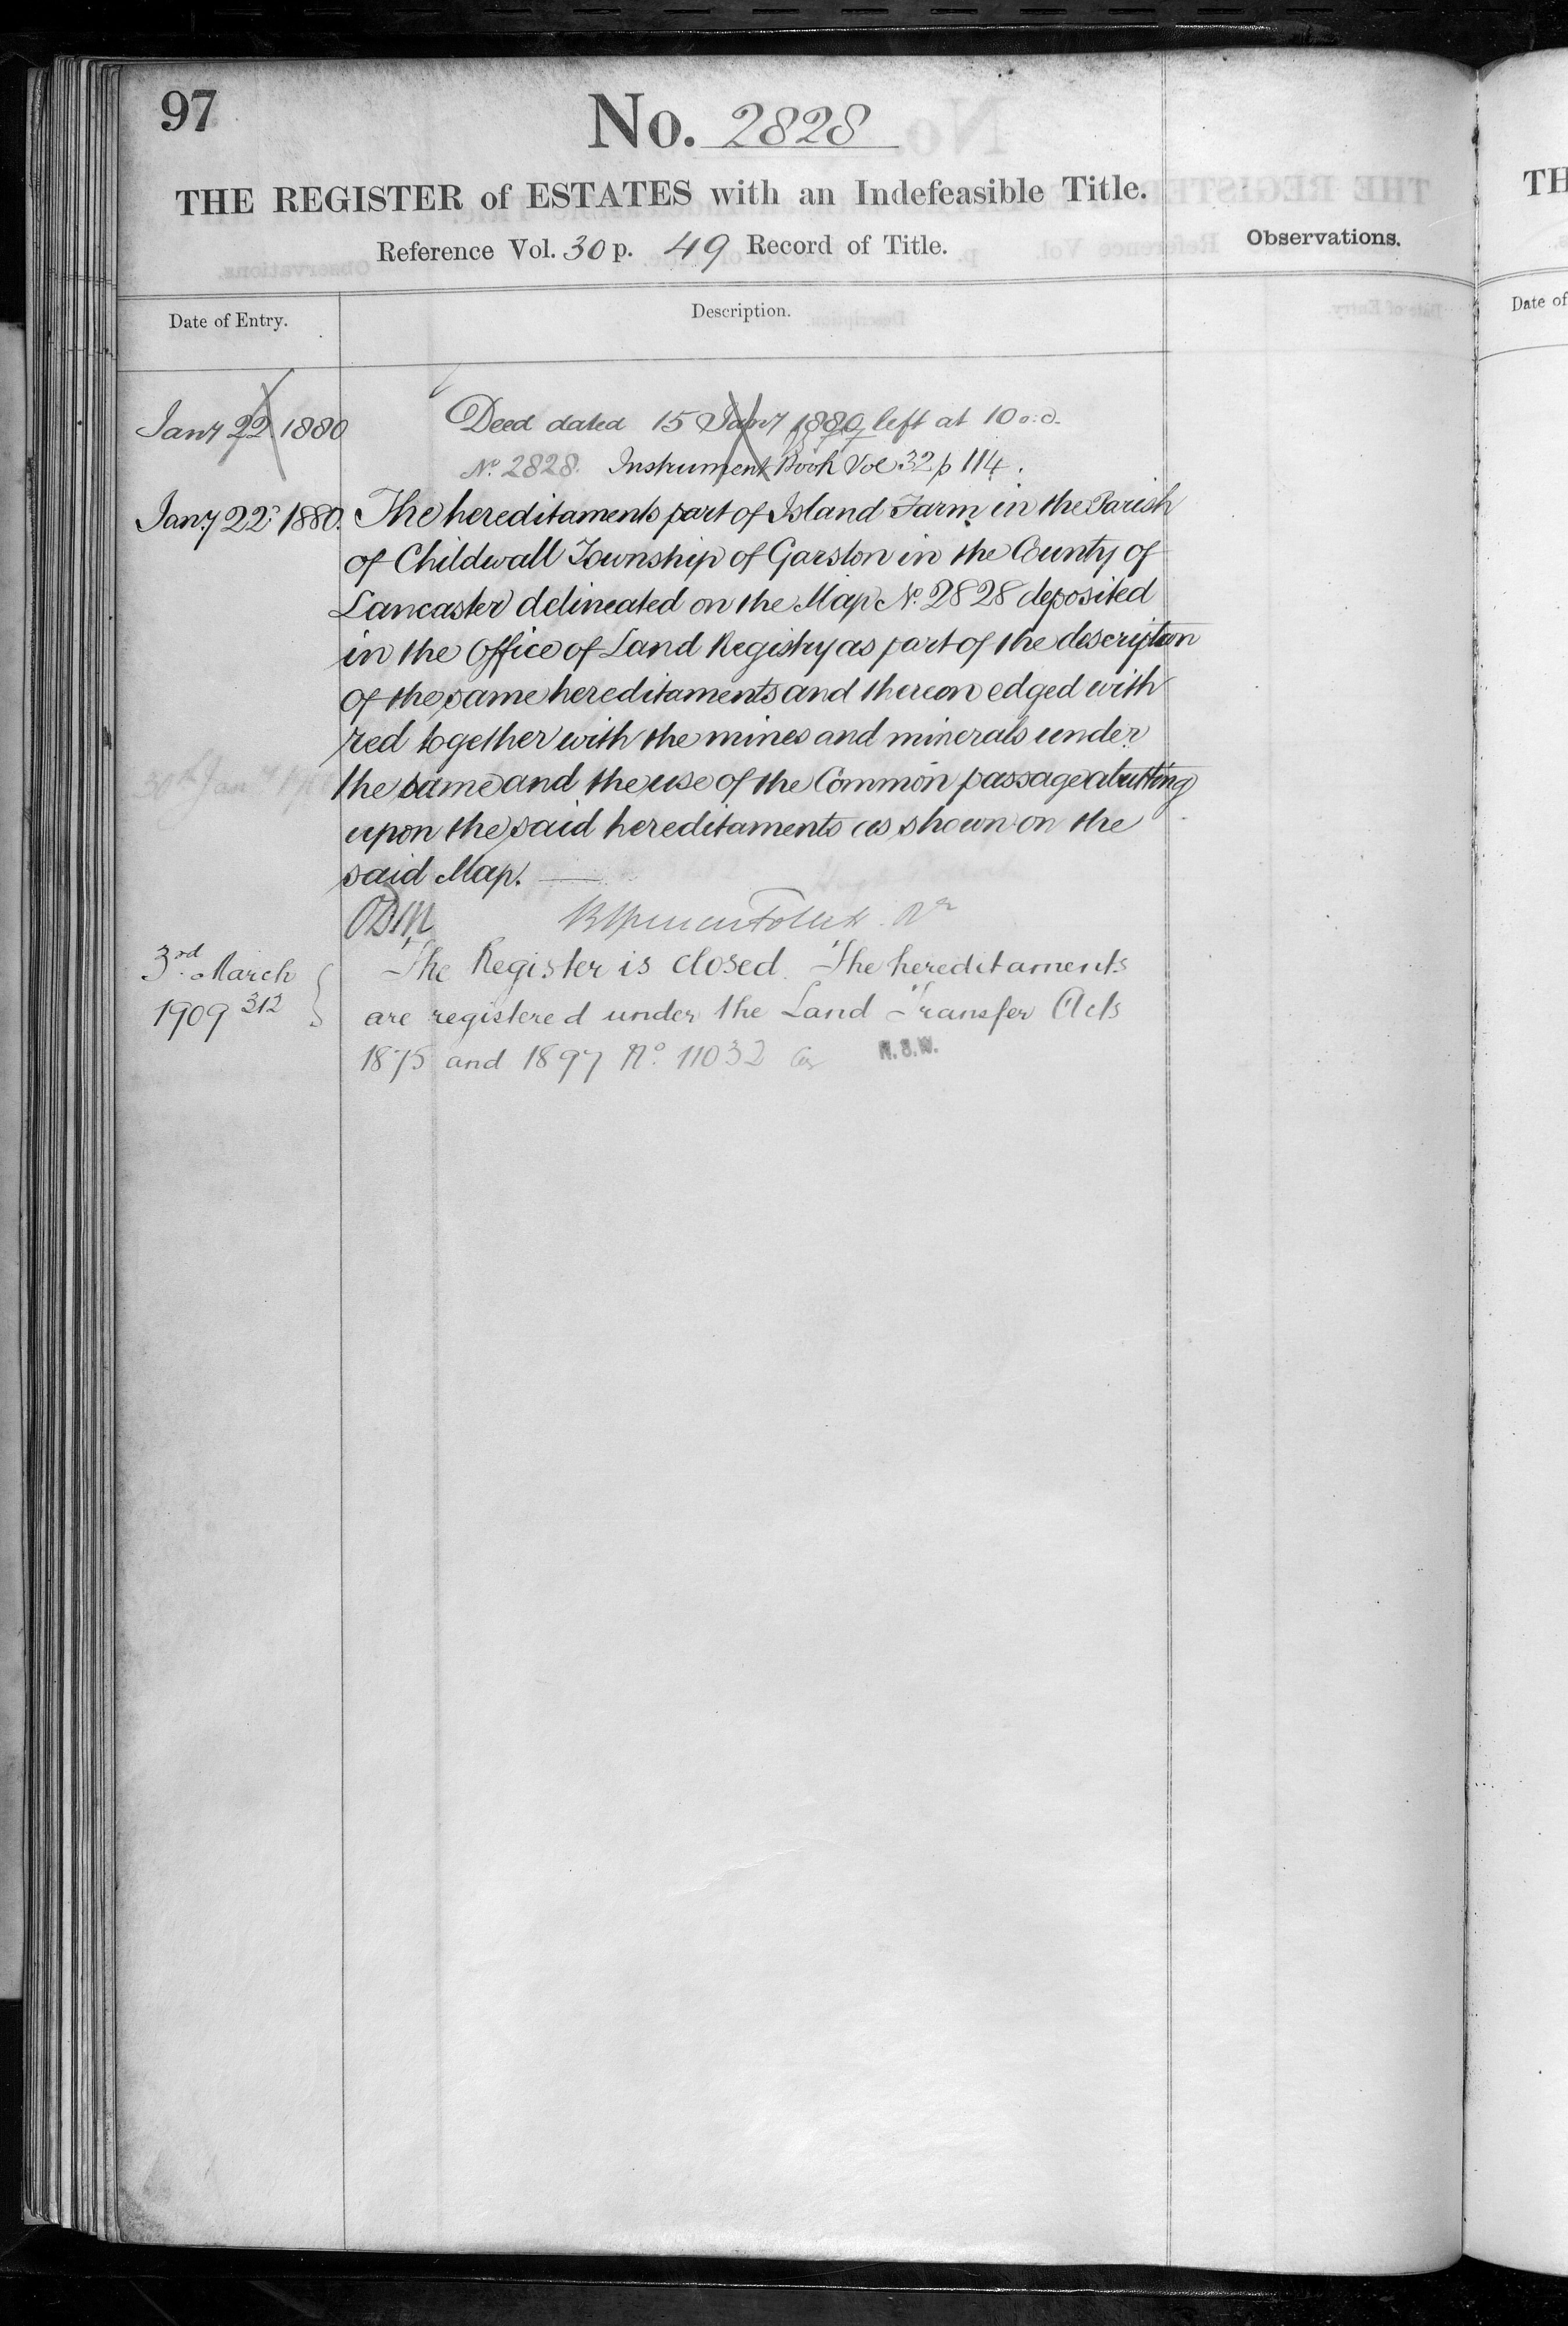 97
No. 2828
THE REGISTER of ESTATES with an Indefeasible Title.
Reference Vol. 30 p. 49 Record of Title.
Observations.
Date of Entry.
Description.
Jany 22 1880
Deed dated 15 Jany 1880 left at
No. 2828. Instrument Book Vol 32 p 114.
Jany 22: 1880. The hereditaments part of Island Farm in the Parish
of Childwall Township of Garston in the County of
Lancaster delineated on the Map No. 2828 deposited
in the Office of Land Registry as part of the description
of the same hereditaments and thereon edged with
red together with the mines and minerals under
the same and the use of the Common passage abutting
upon the said hereditaments as shown on the
said Map.
3rd March
1909 312
The Register is closed. The hereditaments
are registered under the Land Transfer Acts
1875 and 1897 No. 11032
TH
Date of